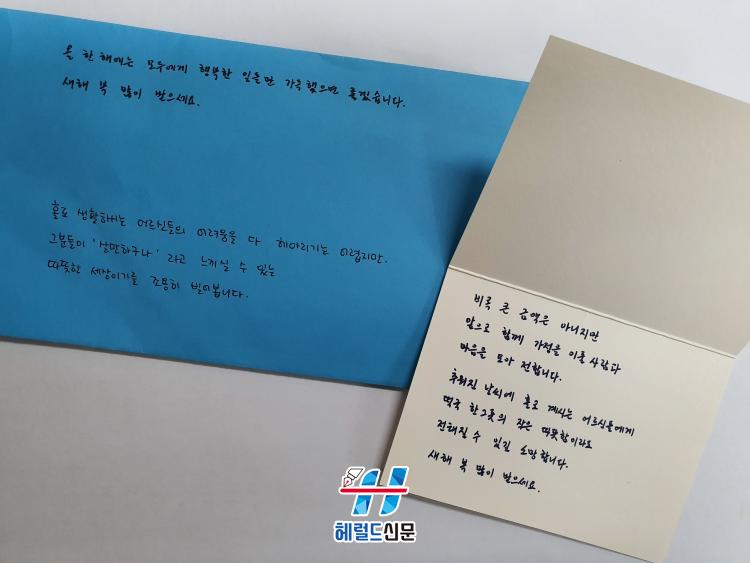 올 한해에는 모두에게 행복한 일들만 가득했으면 좋겠습니다.
새해 복 많이 받으세요.
홀로 생활하시는 어르신들의 어려움을 다 헤아리기는 어렵지만.
그분들이 '살만하구나' 라고 느끼실 수 있는
따뜻한 세상이기를 조용히 빌어봅니다.
비록 큰 금액은 아니지만
앞으로 함께 가정을 이룰 사람과
마음을 모아 전합니다.
추워진 날씨에 홀로 계시는 어르신들에게
떡국 한그릇의 작은 따뜻함이라도
전해질 수 있길 소망합니다.
새해 복 많이 받으세요.
헤럴드신문